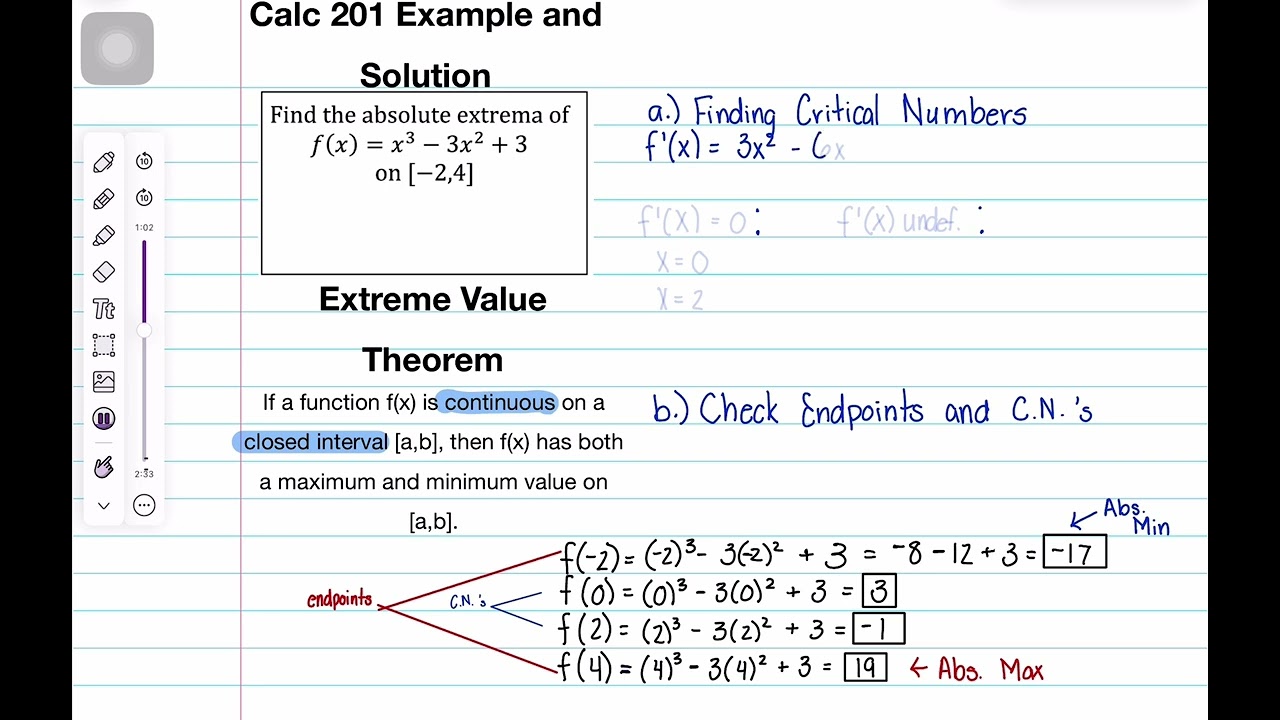 Calc 201 Example and
Solution
Find the absolute extrema of
f(x) = x³ − 3x² + 3
on [−2,4]
a.) Finding Critical Numbers
f'(x) = 3x² - 6x
f'(x) = 0 :
x = 0
x = 2
f'(x) undef. :
10
10
1:02
Tt
2:33
Extreme Value
Theorem
If a function f(x) is continuous on a
closed interval [a,b], then f(x) has both
a maximum and minimum value on
[a,b].
b.) Check Endpoints and C.N.'s
Abs.
Min
f(-2) = (-2)³ - 3(-2)² + 3 = -8 - 12 + 3 = -17
endpoints
C.N.'s
f(0) = (0)³ - 3(0)² + 3 = 3
f(2) = (2)³ - 3(2)² + 3 = -1
f(4) = (4)³ - 3(4)² + 3 = 19 ← Abs. Max